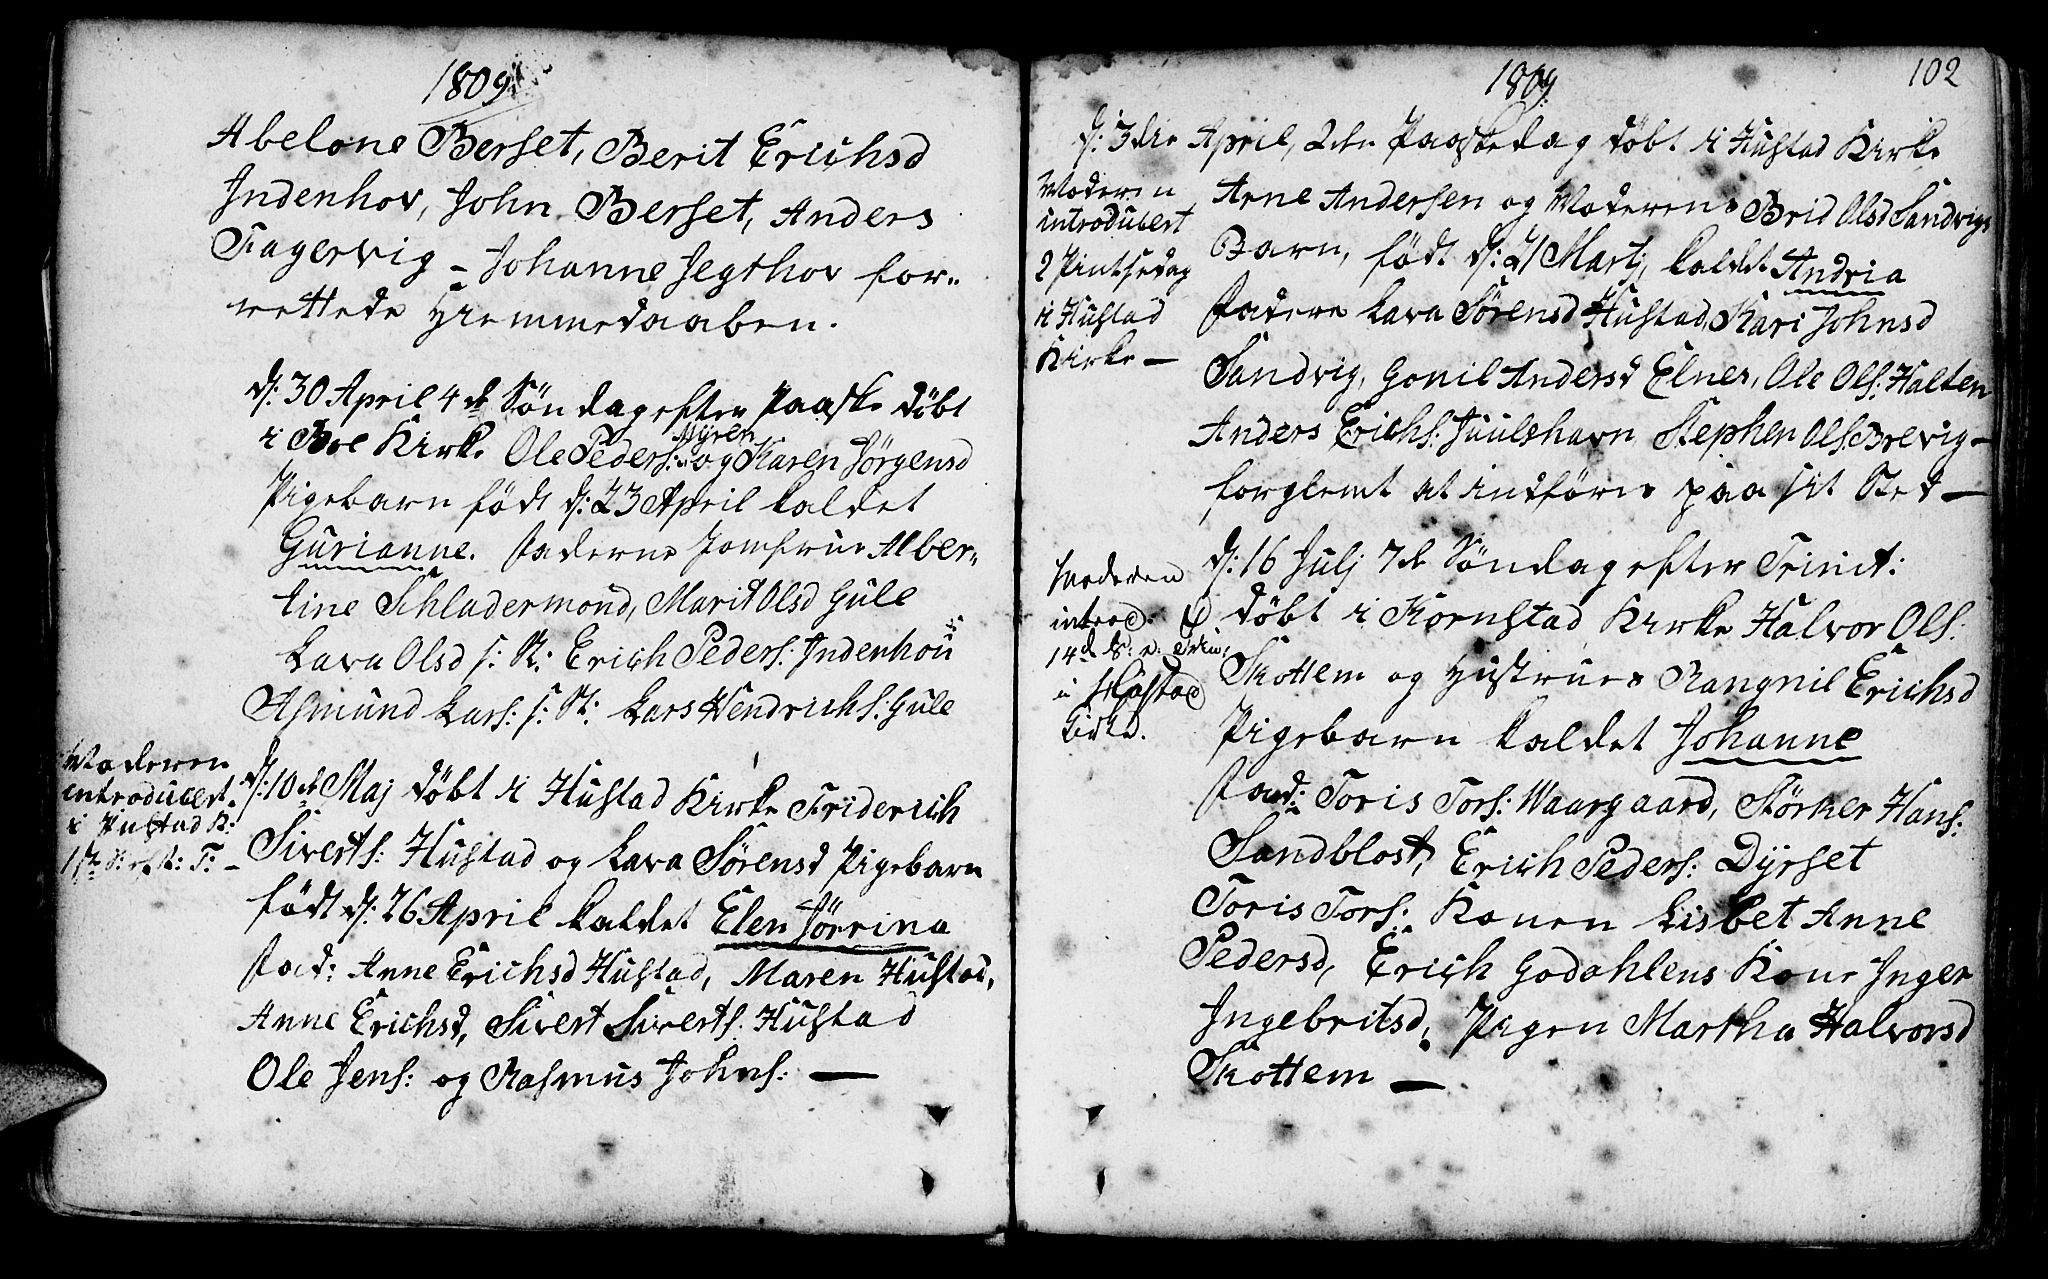 1809
Abelone Berset, Berit Erichsd
Indenhov, John Berset, Anders
Fagervig – Johanne Jegthov for-
rettede Hiemmedaaben.
d: 30 April 4de Søndag efter Paaske døbt
i Boe Kirke Ole Peders: Myren og Karen Jørgensd
Pigebarn født d: 23 April kaldet
Gurianne. Faderne Jomfrue Alber-
tine Schladermond, Marit Olsd Gule
Lava Olsd s: St: Erich Peders: Indenhou
Asmund Lars: s: St: Lars Hendrichs: Gule
Moderen
introducert
i Hustad K:
d: 10de Maj døbt i Hustad Kirke Friderich
Siverts: Hustad og Lava Sørensd Pigebarn
født d: 26 April kaldet Elen Jørrina
Fad: Anne Erichsd Hustad, Maren Hustad,
Anne Erichsd, Sivert Siverts: Hustad
Ole Jens: og Rasmus Johns: —
1809
102
d: 3die April, 2den Paaskedag døbt i Hustad Kirke
Moderen
introducert
2 Pintsedag
i Hustad
Kirke —
Arne Andersen og Moderens Brid Olsd Sandvigs
Barn, født d: 21 Martj, kaldet Andria
Faderne Lava Sørensd Hustad, Kari Johnsd
Sandvig, Gonil Andersd Elner, Ole Ols: Halten
Anders Erichs: Juulshavn, Stephen Ols: Brevig –
forglemt at indføres paa sit Sted —
Moderen
introd.
14de S: e: Trin:
i Hustad
Kirke.
d: 16 Julj 7de Søndag efter Trinit:
døbt i Kornstad Kirke Halvor Ols:
Skottem og Hustrues Rangnil Erichsd
Pigebarn kaldet Johanne
Fad: Toris Tors: Waargaard, Størker Hans:
Sandblost, Erich Peders: Dyrset
Toris Tors: Konen Lisbet Anne
Pedersd, Erich Godahlens Kone Inger
Ingebritsd, Pigen Martha Halvorsd
Skottem —